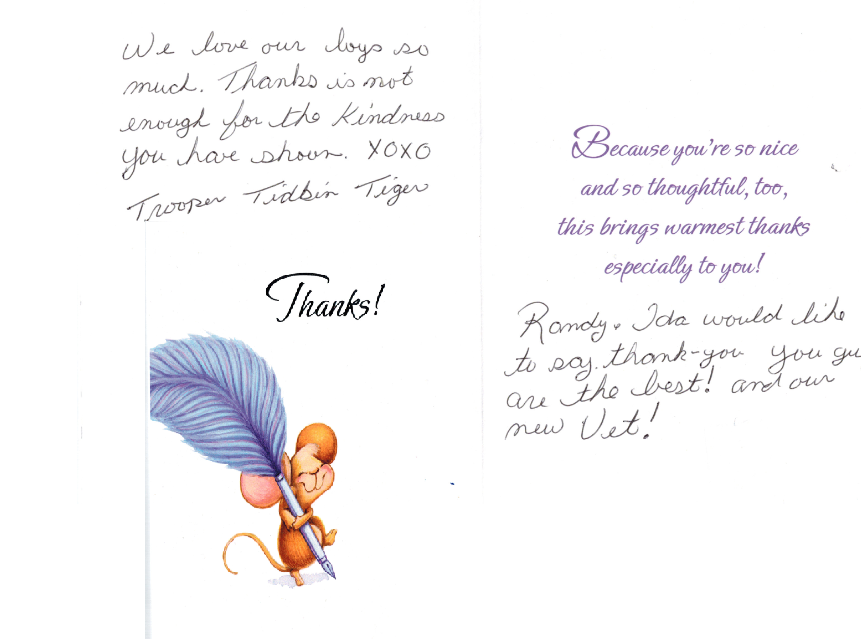 We love our boys so
much. Thanks is not
enough for the Kindness
you have shown. XOXO
Trooper Tidbin Tiger
Thanks!
Because you're so nice
and so thoughtful, too,
this brings warmest thanks
especially to you!
Randy & Ida would like
to say thank-you you gu
are the best! and our
new Vet!